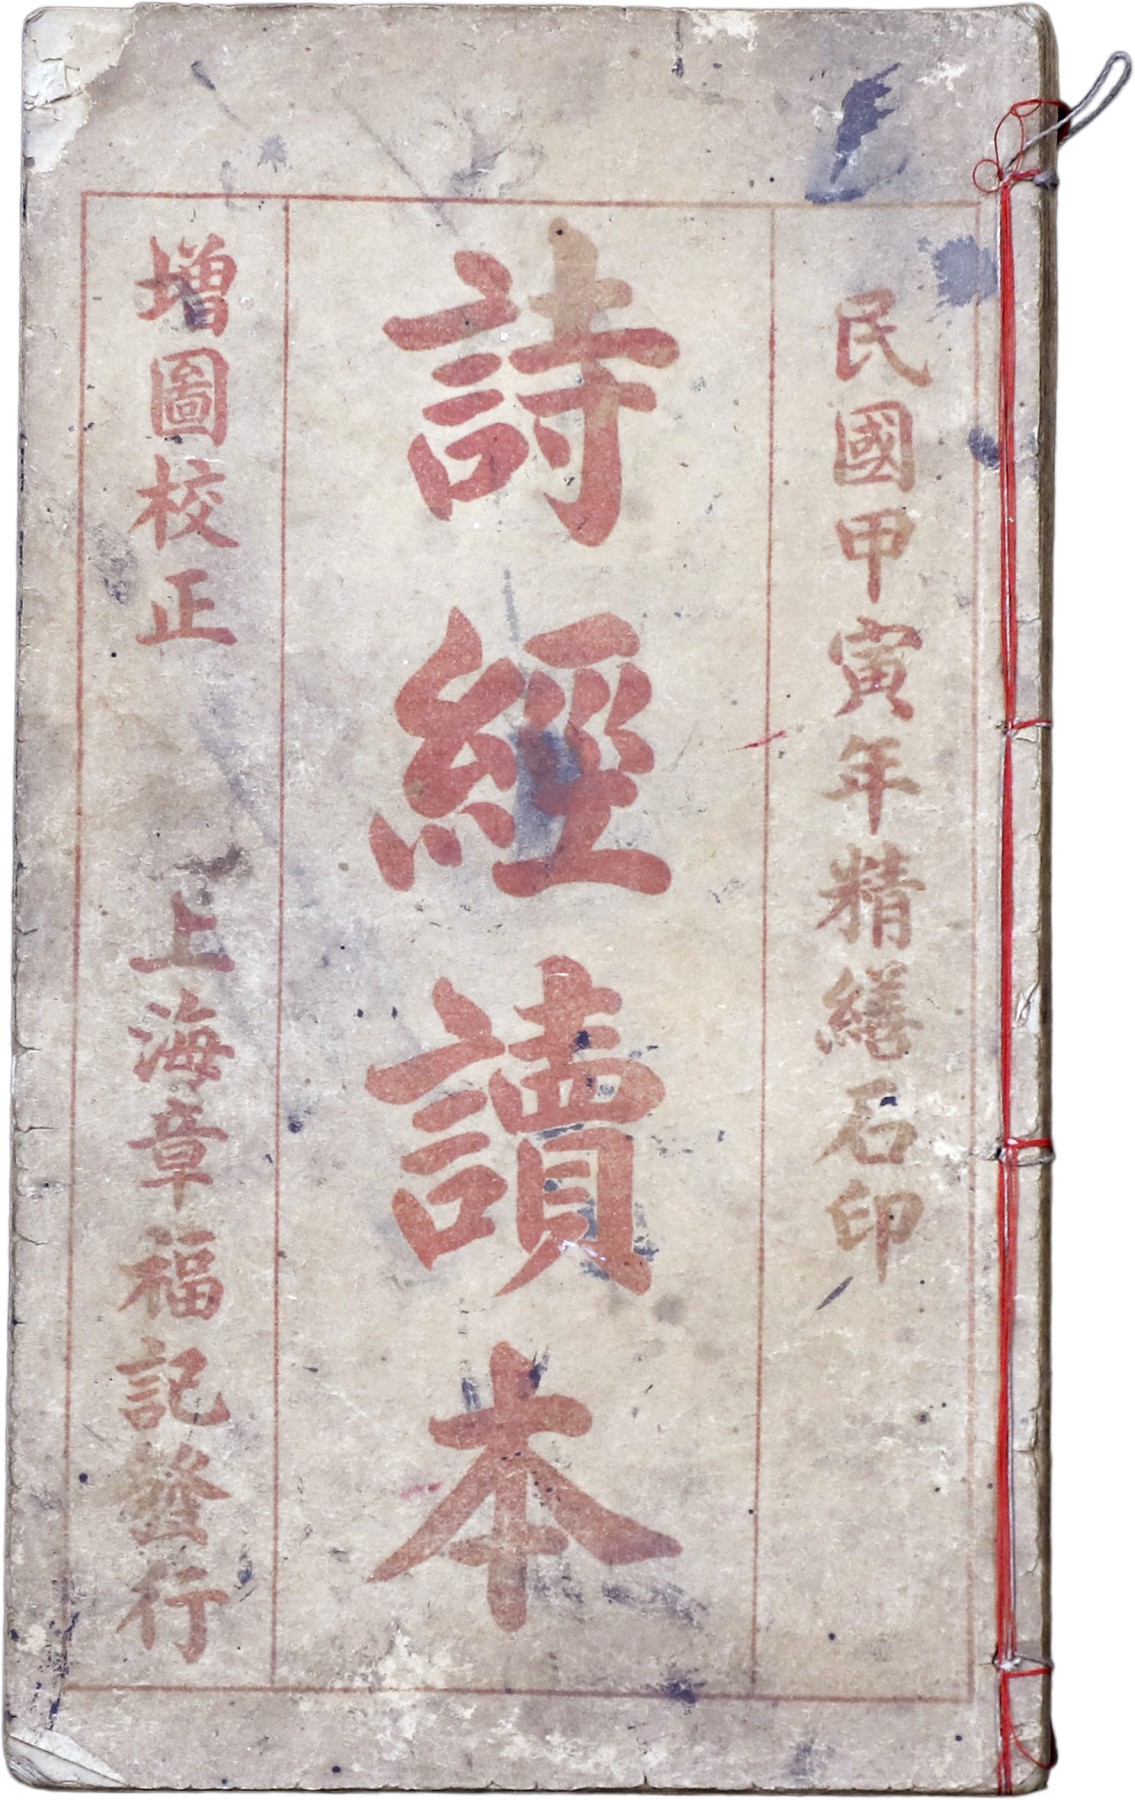 民國甲寅年精繕石印
詩經讀本
增圖校正 上海章福記發行